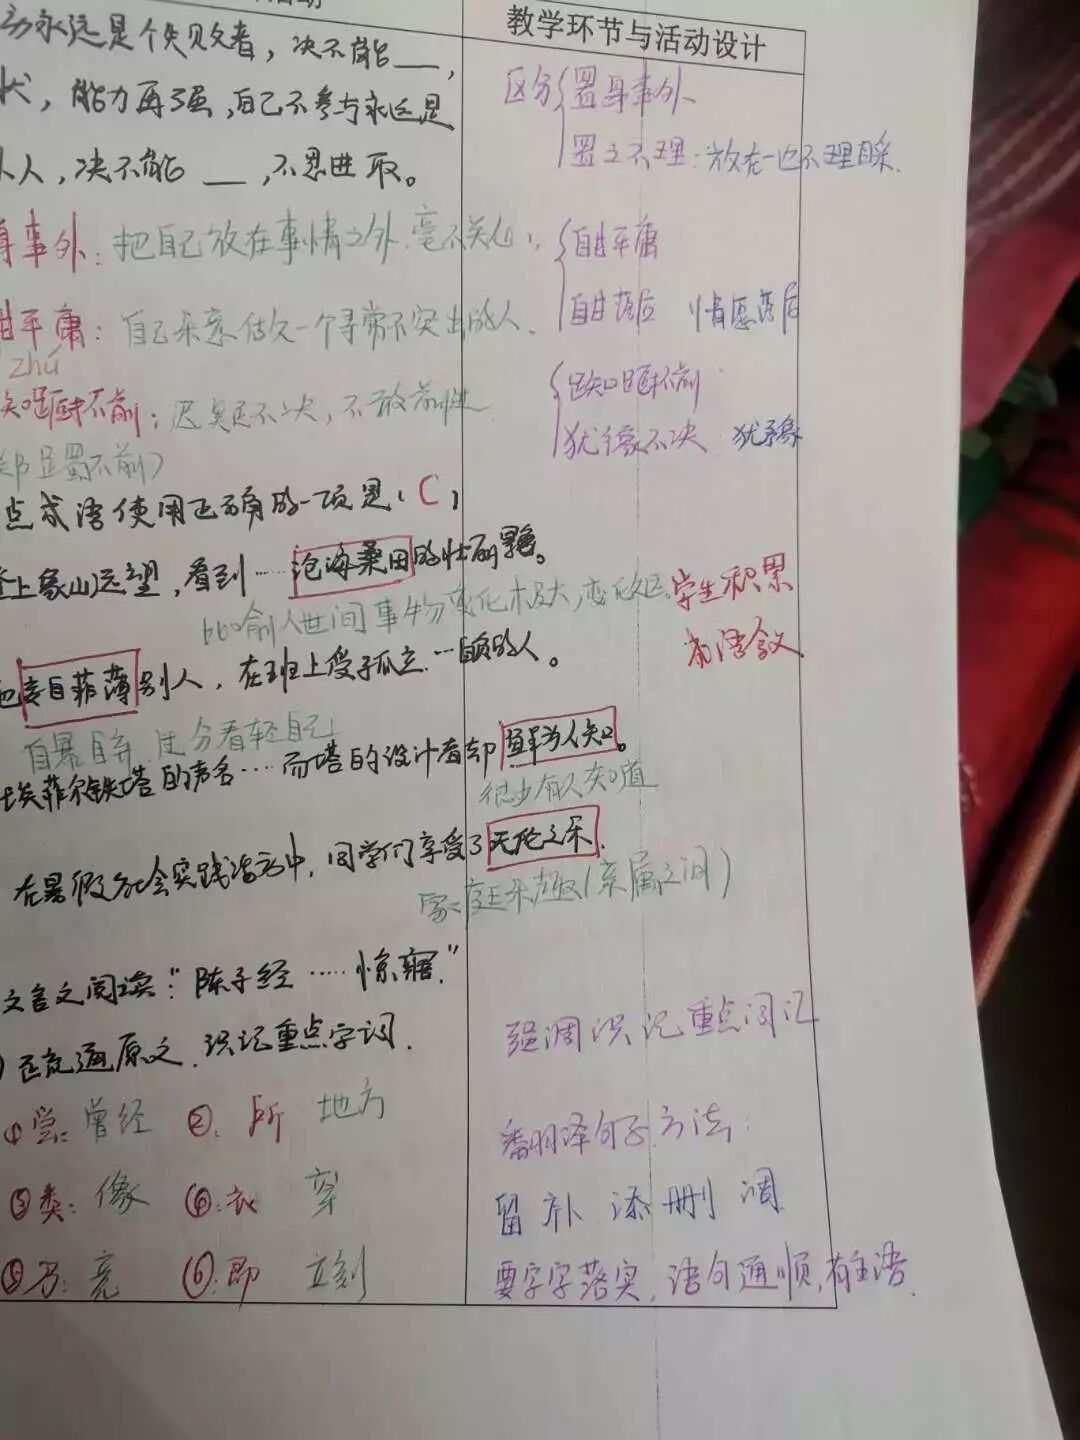 活动
教学环节与活动设计
永远是个失败者，决不能__，
状，能力再强，自己不参与永远是
人，决不能__，不思进取。
身事外：把自己放在事情之外，毫不关心，
甘平庸：自己乐意做一个寻常不突出的人．
zhú
踟蹰不前；迟疑不决，不敢前进
足蜀不前）
点成语使用正确的一项是（C）
登上象山远望，看到……沧海桑田的壮丽景色。
比喻人世间事物变化极大，变化
他妄自菲薄别人，在班上受孤立…一自的人。
自暴自弃，过分看轻自己
埃菲尔铁塔的声名……而塔的设计者却鲜为人知。
很少有人知道
在暑假社会实践活动中，同学们享受了天伦之乐．
家庭乐趣（亲属之间）
文言文阅读：“陈子经……惊寤．”
）疏通原文．识记重点字词．
①尝：曾经 ②：所 地方
③类：像 ④：衣 穿
⑤方： ⑥：即 立刻
区分{置身事外
置之不理：放在一边不理睬．
{自甘平庸
自甘落后 情愿落后
{踟蹰不前
犹豫不决 犹豫
学生积累
成语含义
强调识记重点词汇
翻译句子方法：
留 补 添 删 调
要字字落实，语句通顺，有主语．